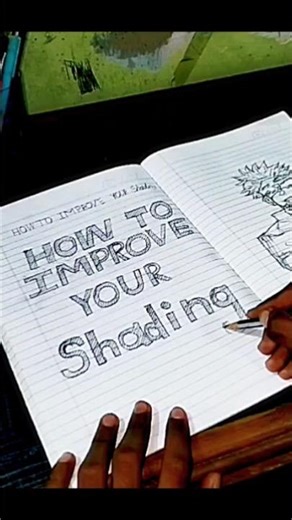 HOW TO IMPROVE YOUR Shading
HOW TO
IMPROVE
YOUR
Shading